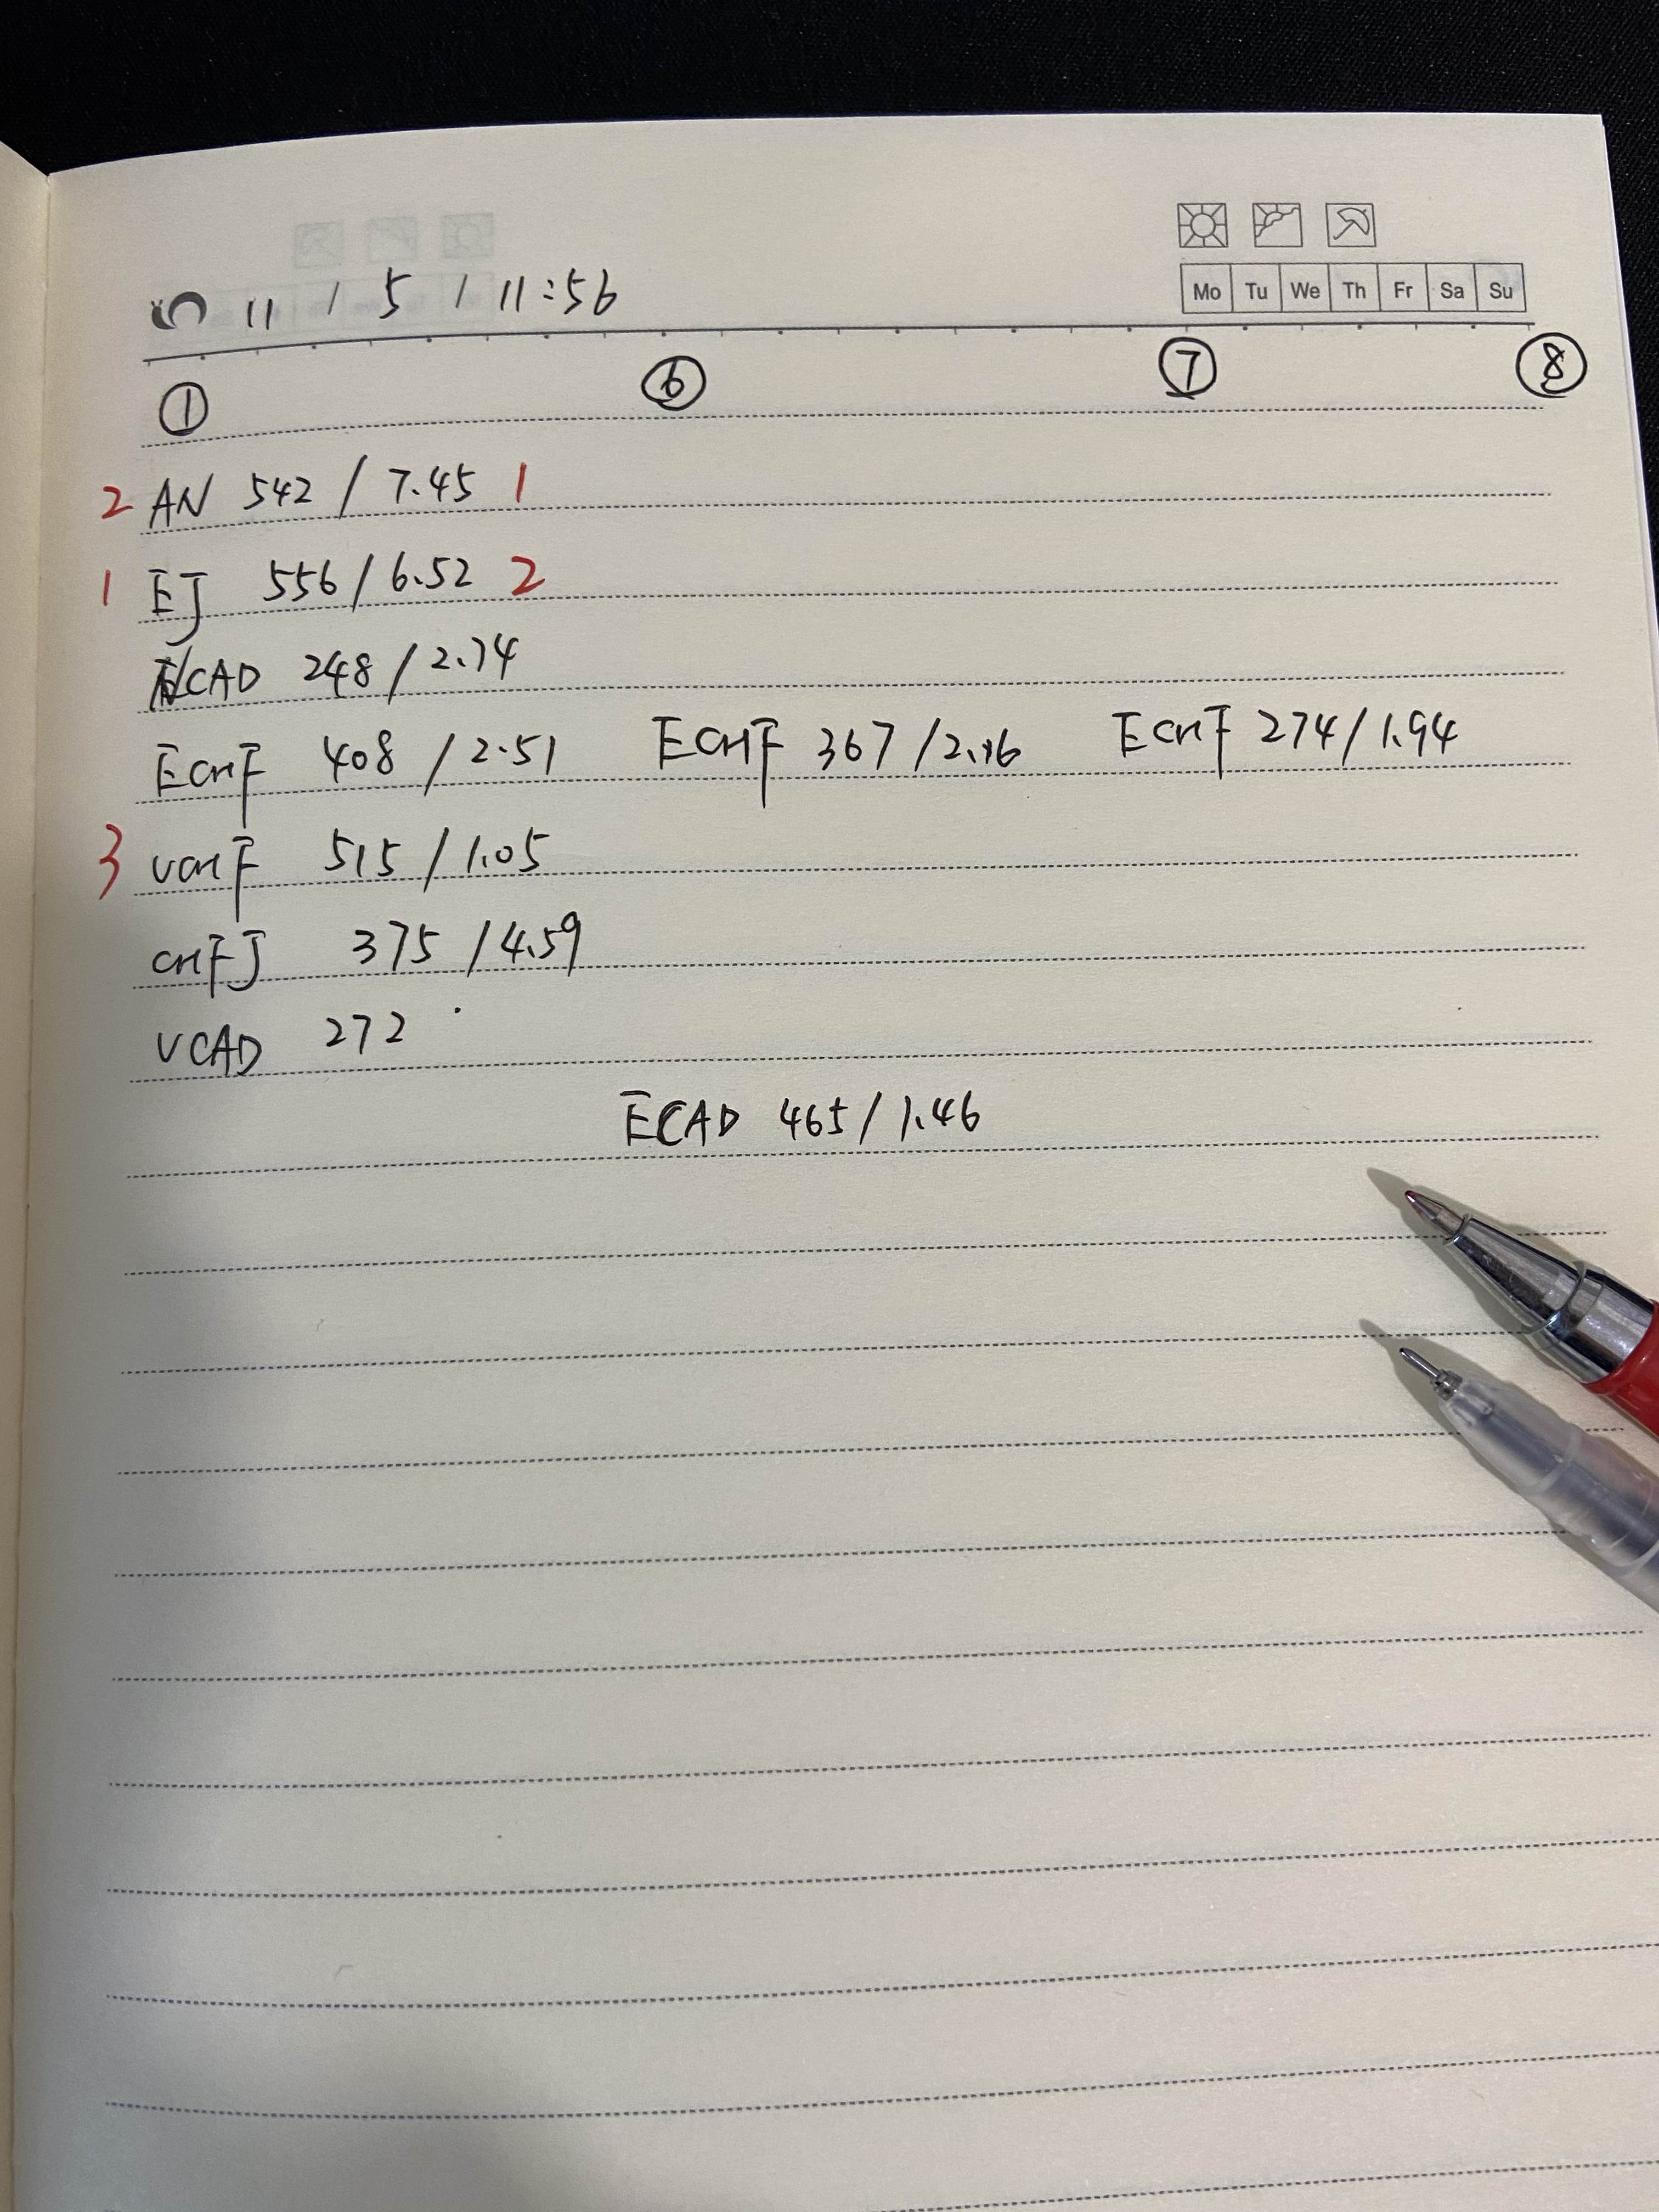 11 / 5 / 11:56
Mo Tu We Th Fr Sa Su
① ⑥ ⑦ ⑧
2 AN 542 / 7.45 1
1 EJ 556 / 6.52 2
CAD 248 / 2.74
ECHF 408 / 2.51 ECHF 367 / 2.16 ECHF 274 / 1.94
3 VCHF 515 / 1.05
CHFJ 375 / 4.59
VCAD 272
ECAD 465 / 1.46